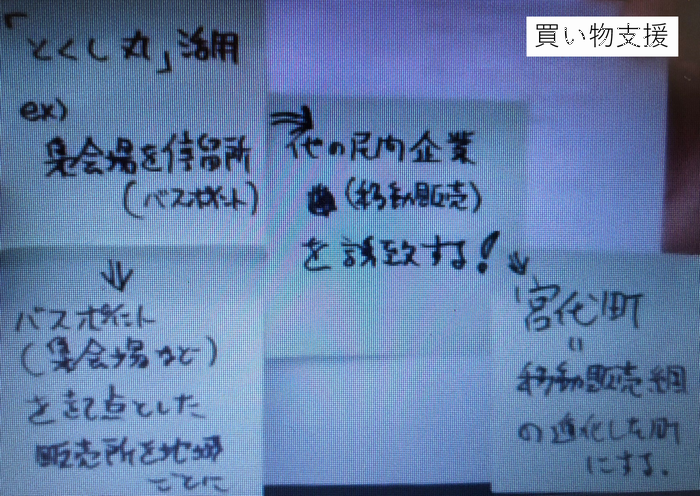 買い物支援
「とくし丸」活用
ex)
集会場を停留所
(バスポイント)
⇓
バスポイント
(集会場など)
を起点とした
販売所を地域
ごとに
⇒他の民間企業
(移動販売)
を誘致する!
宮代町
"
移動販売網
の進化した町
にする。